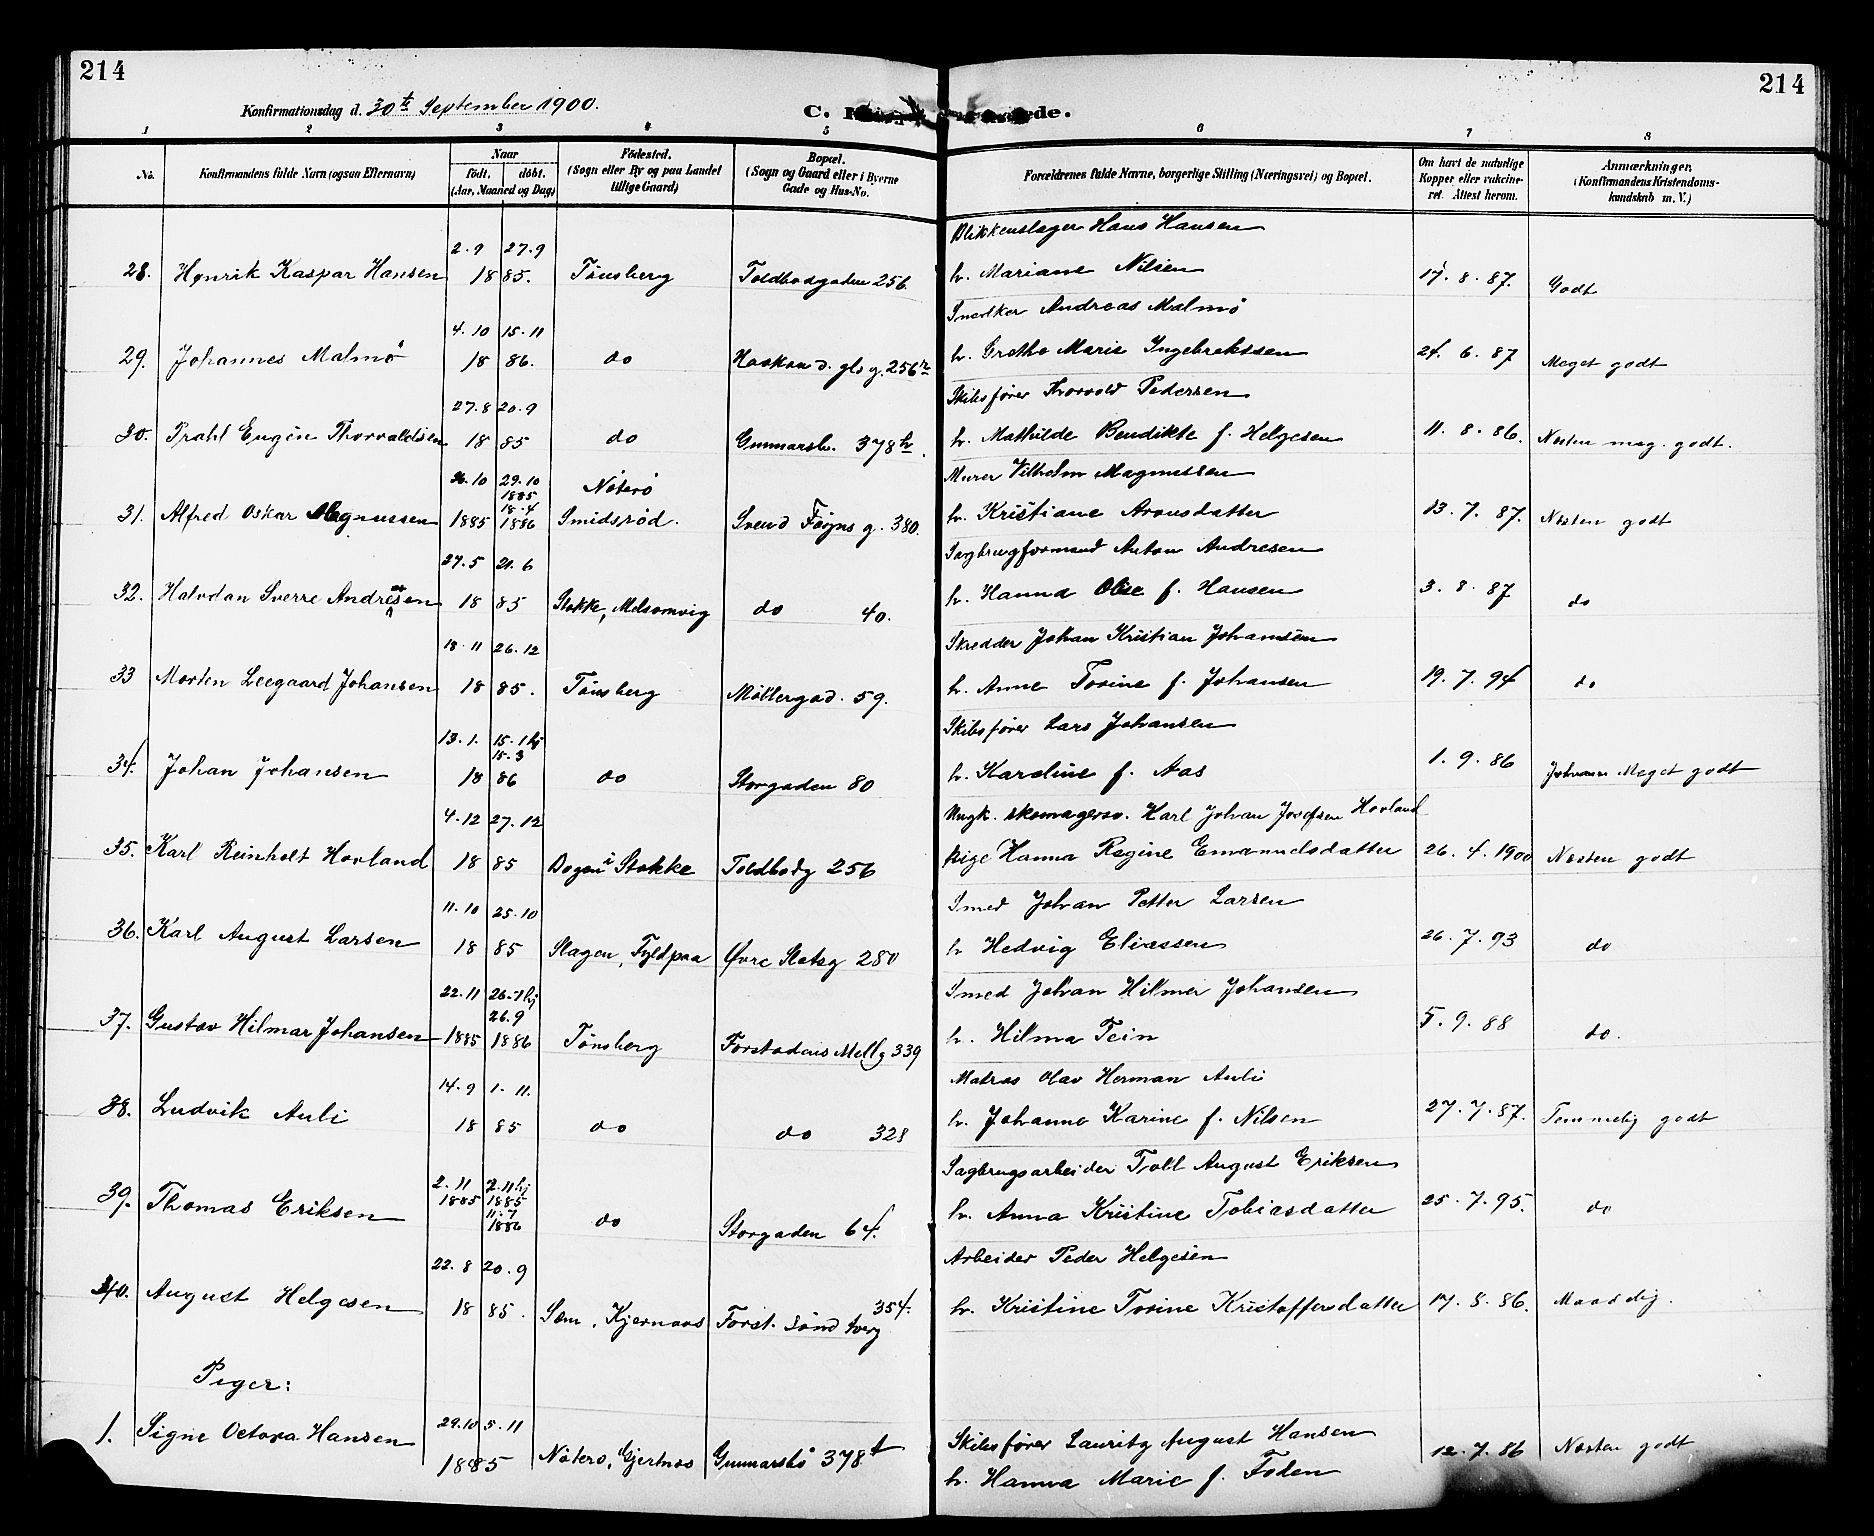 214
214
Konfirmationsdag d. 30te September 1900.
C.
1 2 3 4 5 6 7 8
No.
Konfirmandens fulde Navn (ogsaa Efternavn)
Naar
født. døbt.
(Aar, Maaned og Dag)
Fødested.
(Sogn eller By og paa Landet tillige Gaard)
Bopæl.
(Sogn og Gaard eller i Byerne Gade og Hus-No.
Forældrenes fulde Navne, borgerlige Stilling (Næringsvei) og Bopæl.
Om havt de naturlige Kopper eller vaksineret. Attest herom.
Anmærkninger, (Konfirmandens Kristendomskundskab m. V.)
28. Henrik Kaspar Hansen 2.9 27.9 1885. Tønsberg Toldbodgaden 256 Blikkenslager Hans Hansen
h. Mariane Nilsen 17.8.87. Godt
29. Johannes Malmø 4.10 15.11 1886. do Haakon d. gls g. 256 Snedker Andreas Malmø
h. Grethe Marie Ingebrektsen 24.6.87 Meget godt
30. Prahl Eugén Thorvaldsen 27.8 20.9 1885 do Gunnarsb. 378 h. Skibsfører Thorvald Pedersen
h. Mathilde Bendikte f. Helgesen 11.8.86. Næsten meg. godt.
31. Alfred Oskar Magnussen 10 1885 29.10 1885 18.4 1886 Nøterø Smidsrød. Svend Føyns g. 380. Murer Vilhelm Magnussen
h. Kristiane Aronsdatter 13.7.87. Næsten godt
32. Halvdan Sverre Andresen 27.5 21.6 1885 Stokke, Melsomvig do 40. Sagbrugformand Anton Andresen
h. Hanna Olise f. Hansen 3.8.87 do
33 Morten Leegaard Johansen 18.11 26.12 1885. Tønsberg Møllergad. 59. Skredder Johan Kristian Johansen
h. Anne Torine f. Johansen 19.7.94 do
34. Johan Johansen 13.1. 15.1 hj 15.3 1886 do Storgaden 80 Skibsfører Lars Johansen
h. Karoline f. Aas 1.9.86 Meget godt
35. Karl Reinholt Hovland 4.12 27.12 1885 i Stokke Toldbodg 256 Ungk. skomagersv. Karl Johan Josefsen Hovland
Pige Hanna Regine Emanuelsdatter 26.4.1900 Næsten godt
36. Karl August Larsen 11.10 25.10 1885 Slagen, Fyldpaa Øvre Slotsg 280 Smed Johan Petter Larsen
h Hedvig Eliassen 26.7.93 do
37. Gustav Hilmar Johansen 22.11 1885 26.1 hj 26.9 1886 Tønsberg Forstadens Mellg 339 Smed Johan Hilmer Johansen
h. Hilma Tein 5.9.88 do.
38. Ludvik Auli 14.9 1.11. 1885 do do 328 Matros Olav Herman Auli
h. Johanne Karine f. Nilsen 27.7.87. Temmelig godt
39. Thomas Eriksen 2.11 1885 2.11 hj 1885 11.7 1886 do Storgaden 64. Sagbrugsarbeider Toll August Eriksen
h. Anna Kristine Tobiasdatter 25.7.95. do
40. August Helgesen 22.8 20.9 1885. Sem, Kjernaas Forst. Sønd tverg 354. Arbeider Peder Helgesen
h. Kristine Torine Kristoffersdatter 17.8.86. Maadelig.
Piger:
1. Signe Octova Hansen 29.10 5.11 1885 Nøterø, Gjertnes Gunnarsbø 378 t Skibsfører Lauritz August Hansen
h. Hanna Marie f. Foden 12.7.86 Næsten godt